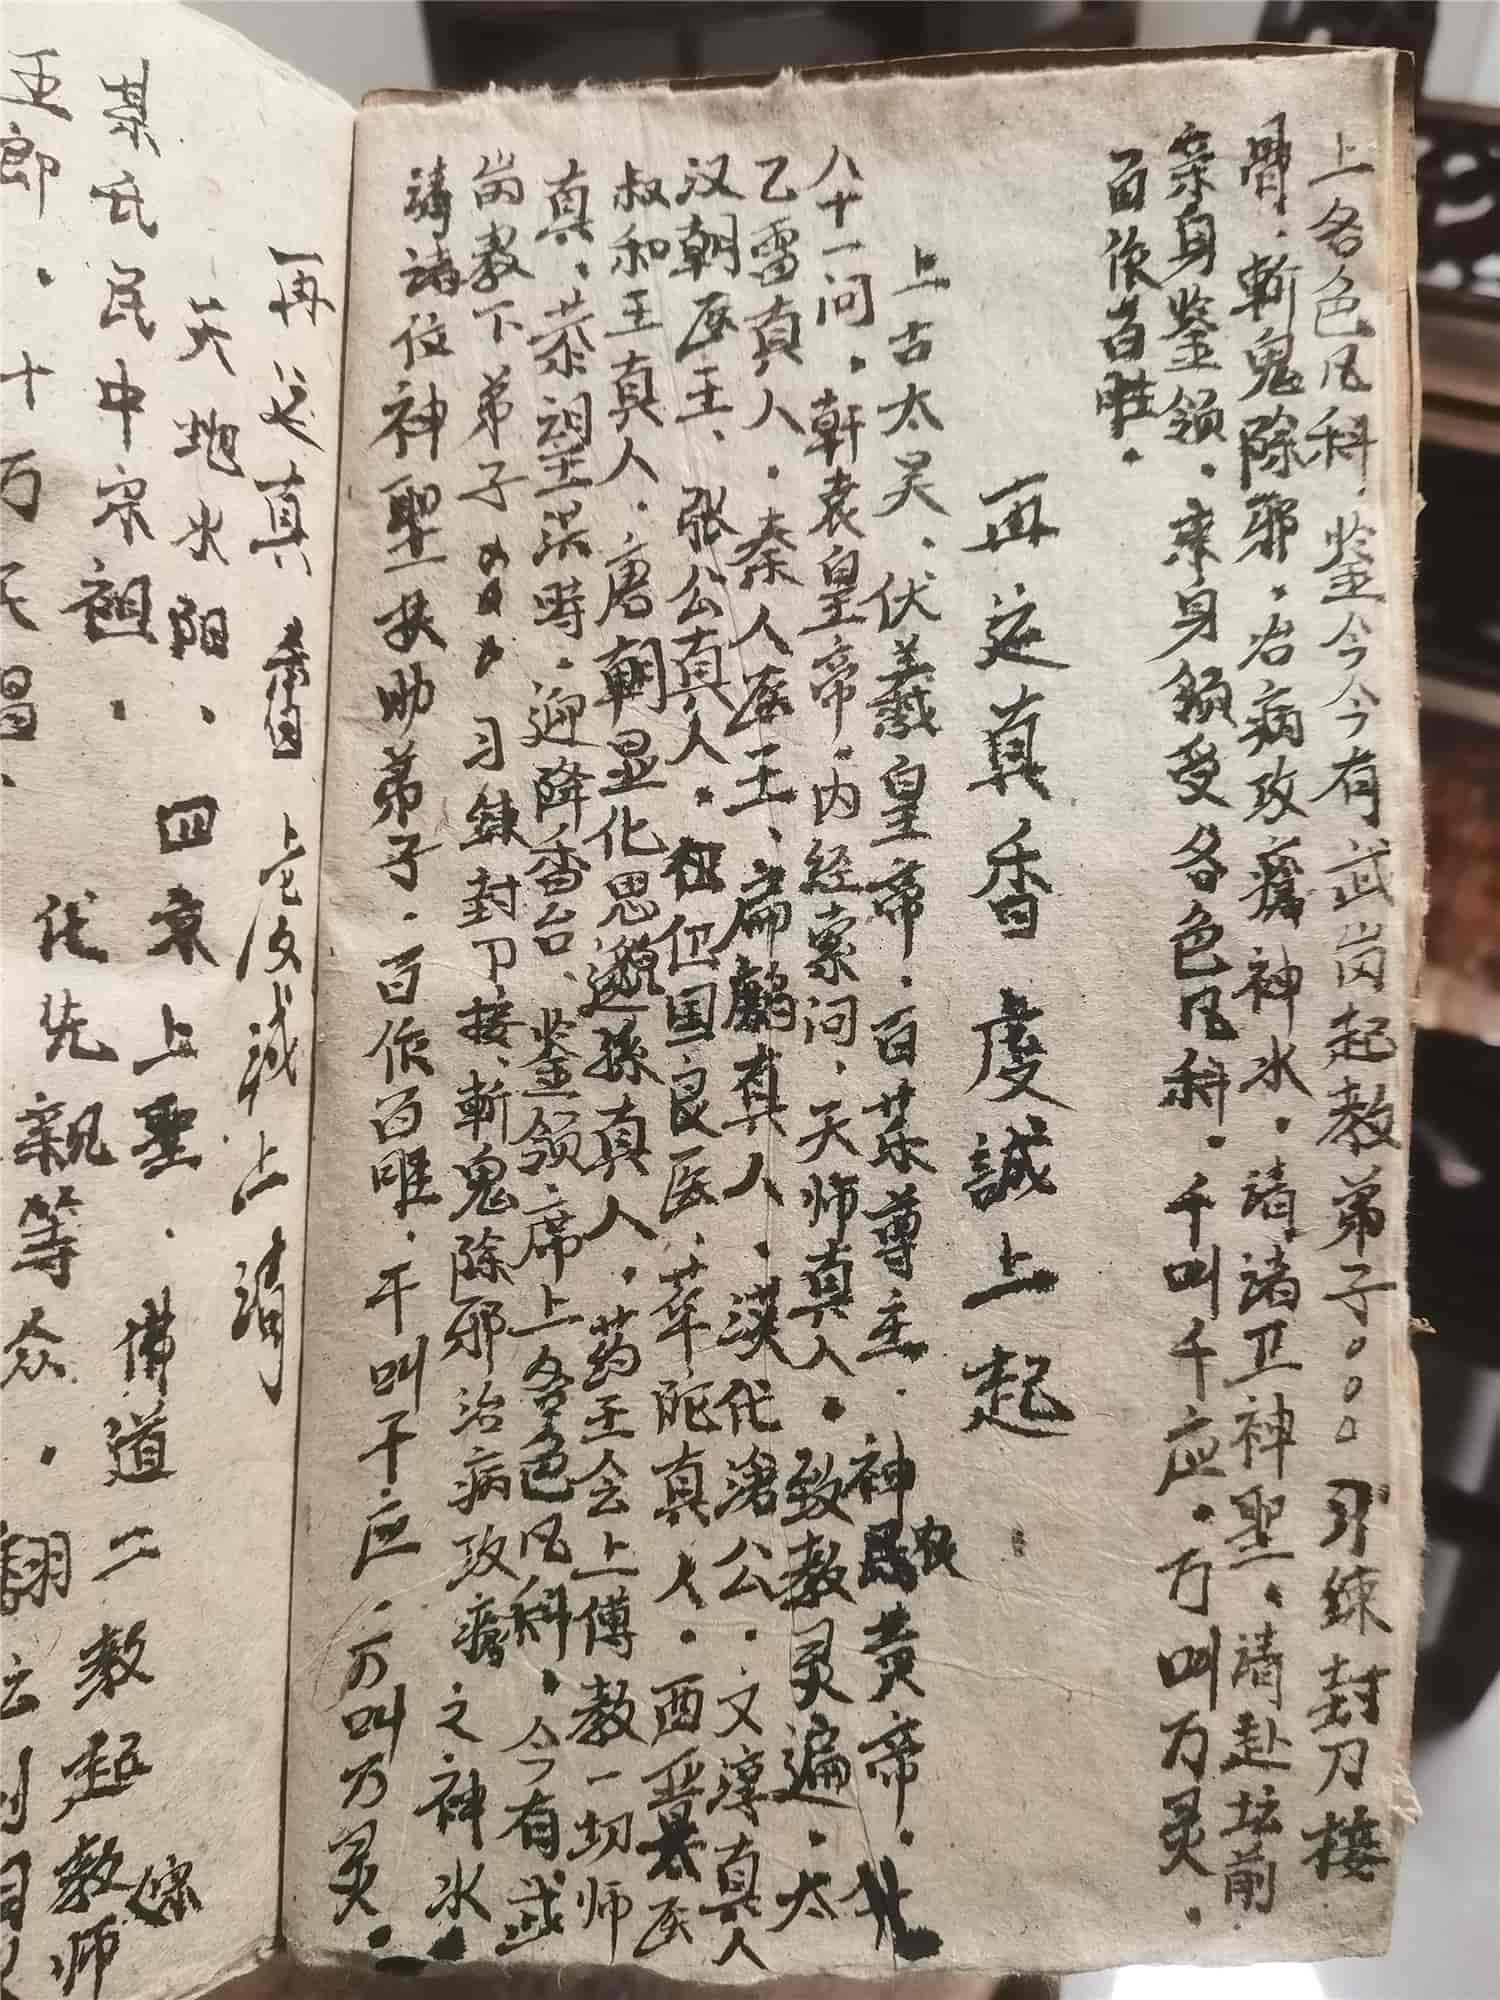 上各色凡科.鉴今今今有武岗起教弟子。。。习练封刀接
骨.斩鬼除邪.治病攻癀神水.请诸卫神聖.请赴坛前
亲身鉴领.亲身领受各色凡科.千叫千应.万叫万灵.
百依百胜.
再运真香虔誠上起
上古太昊.伏羲皇帝.百菜尊主.神農黄帝.
八十一问.轩袁皇帝.内经素问.天师真人.致教灵遍.太
乙雷真人.秦人医王.扁鵲真人.漢代滄公.文淳真人
汉朝医王.张公真人.祖但国良医.華陀真人.西亚县医
叔和王真人.唐朝显化思邈孫真人.药王会上傅教一切师
真.恭望洪時.迎降香台.鉴领席上各色凡科.今有武
岗教下弟子 习錬封卫接.斬鬼除邪治病攻癀之神水.
請請位神聖扶助弟子.百依百胜.千叫千应.万叫万灵.
再运真香 上虔誠上請
天地水阳.四京上聖.佛道二教起教师
某氏民中宗祖. 代先親等众.
五郎.十万